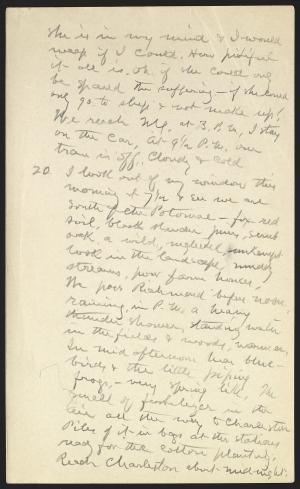 she is in my mind & I would
weep if I could. How pitiful
it all is. Oh if she could only
be spared the suffering – if she could
only go to sleep & not wake up!
We reach W. at 3 P.M., I stay
on the car, At 9½ P.M. our
train is off. Cloudy & cold
20. I look out of my window this
morning at 7½ & see we are
south of the Potomac – fox red
soil, slender pines, scrub
oak, a wild, neglected, unkempt
look in the landscape, muddy
streams, poor farm houses,
We pass Richmond before noon,
raining, in P.M. a heavy
thunder shower, standing water
in the fields & woods, warmer,
In mid-afternoon hear blue-
birds & the little piping
frogs, – very spring like, The
smell of fertilizer in the
air all the way to Charleston
Piles of it in bags at the stations
ready for the cotton planting,
Reach Charleston about mid-night.